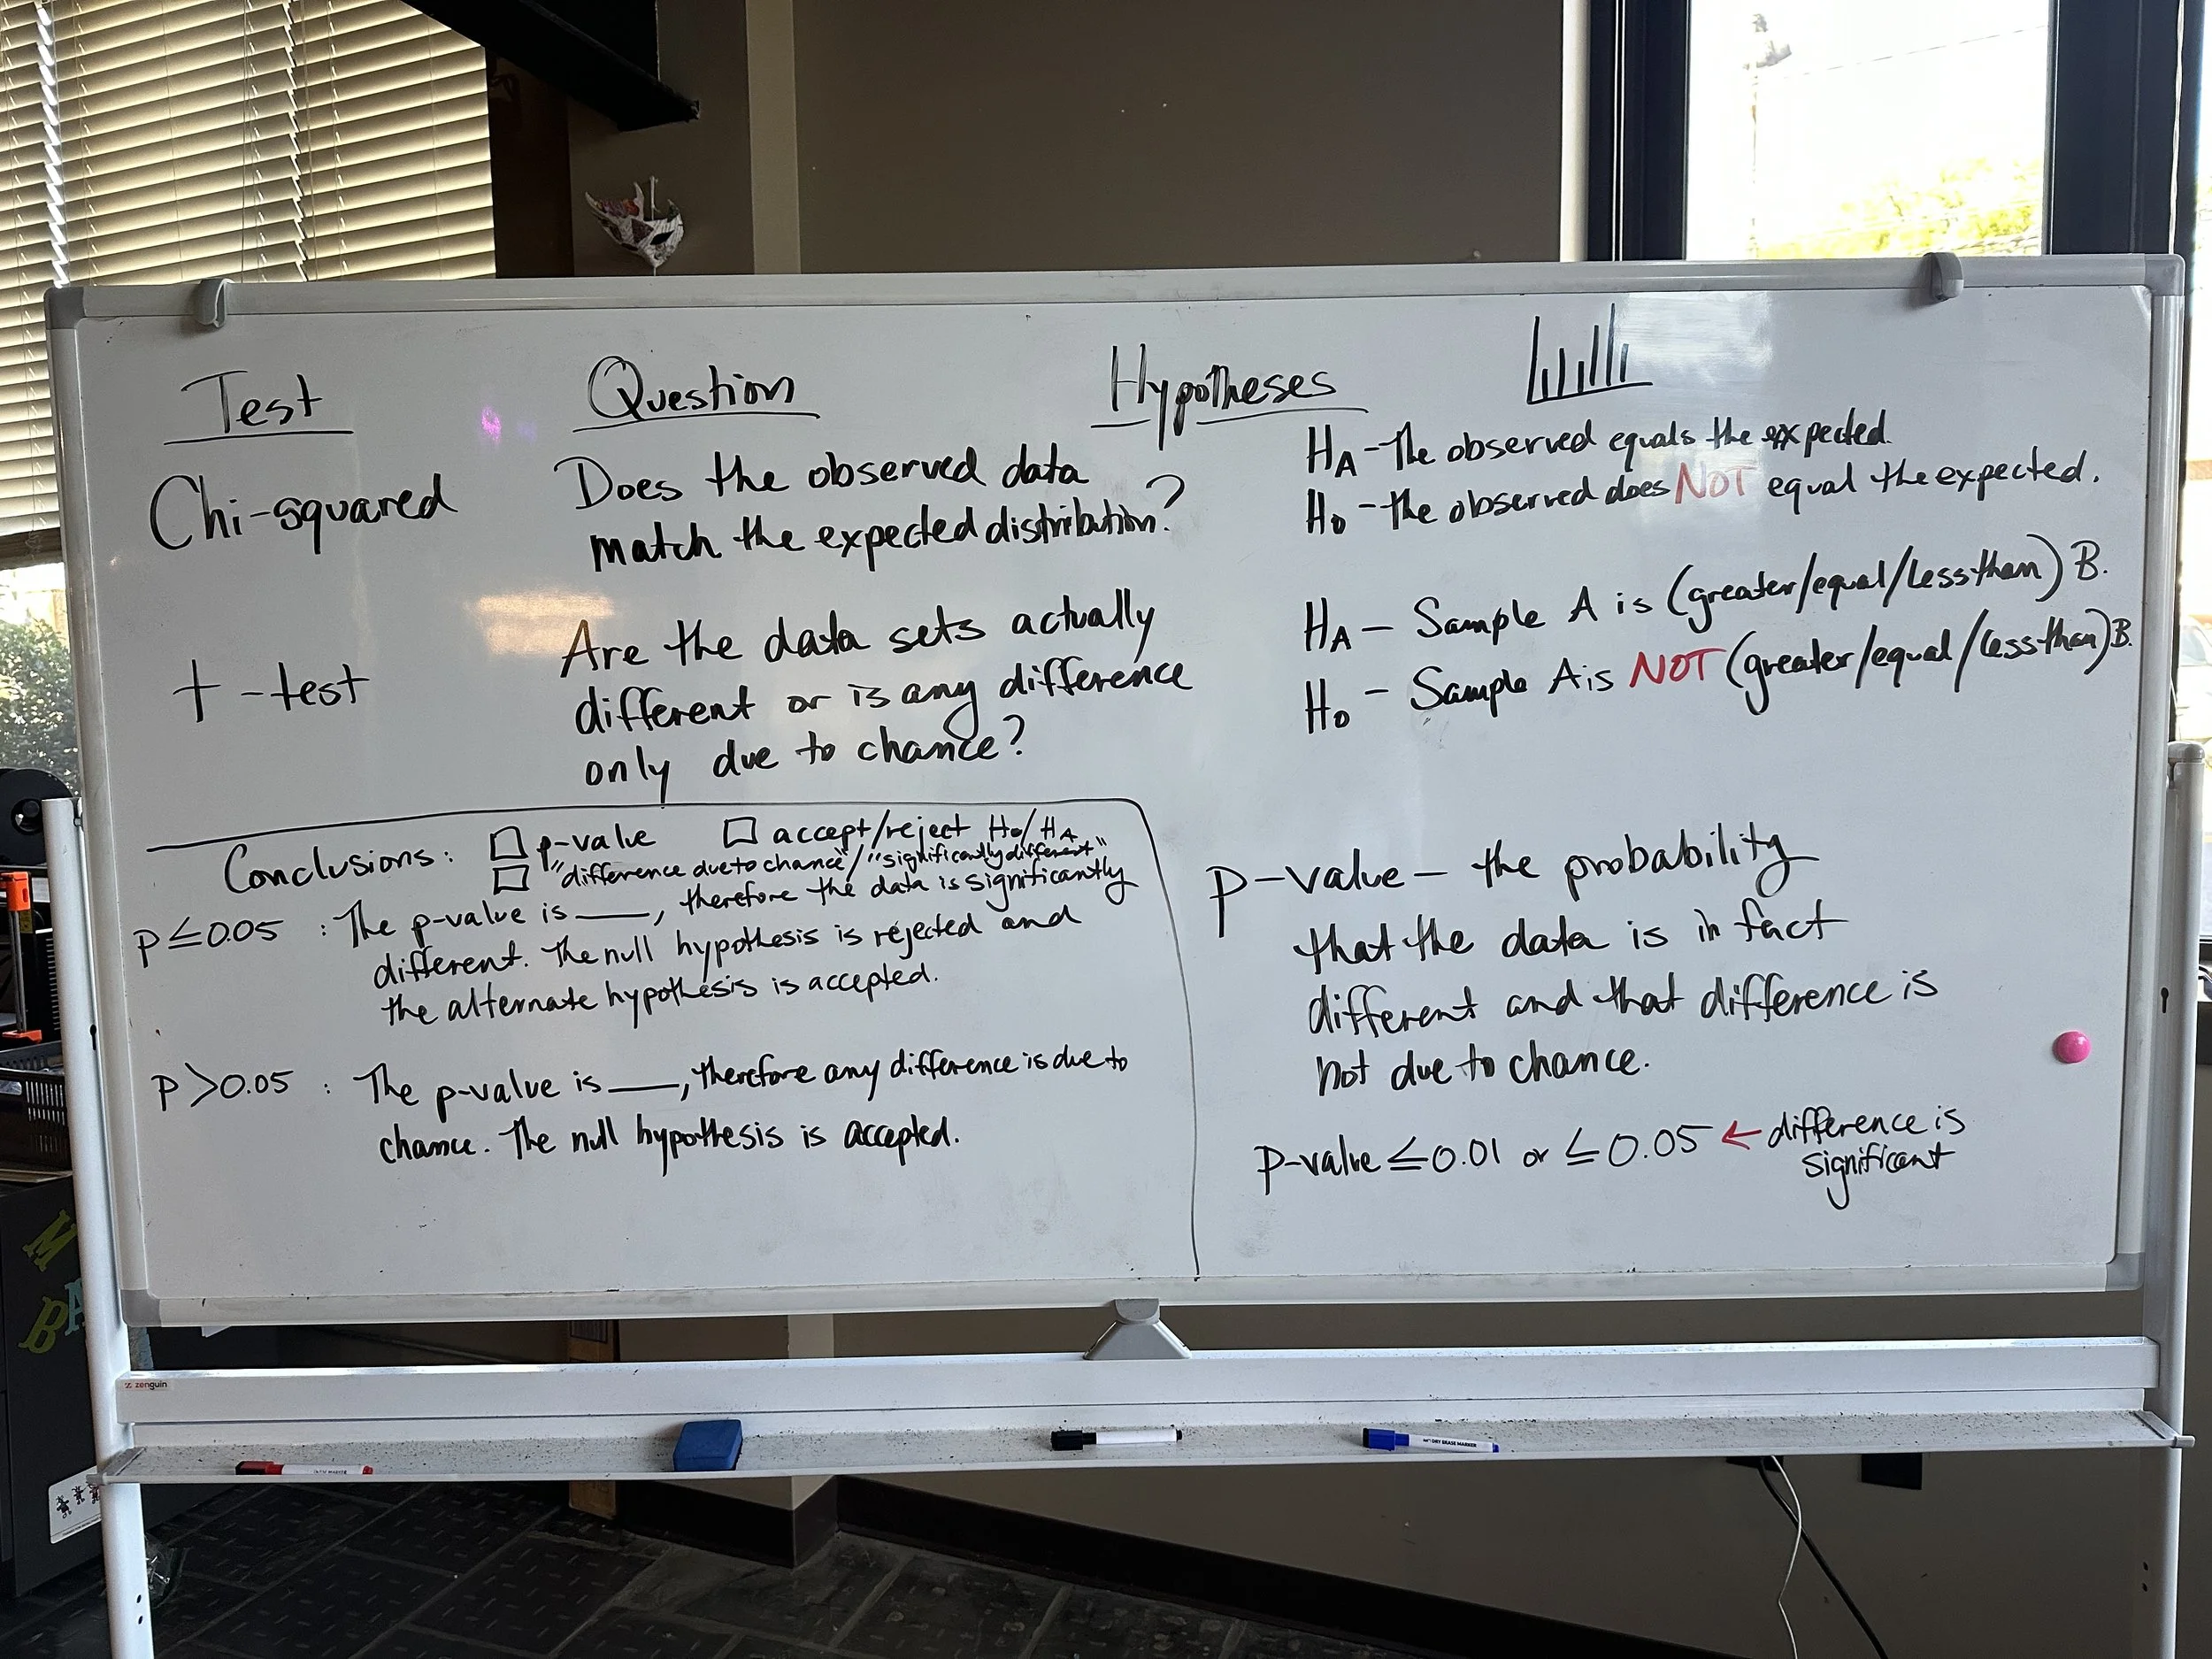 Test
Question
Hypotheses
Chi-squared
Does the observed data
match the expected distribution?
HA - The observed equals the expected.
H0 - the observed does NOT equal the expected.
t-test
Are the data sets actually
different or is any difference
only due to chance?
HA - Sample A is (greater/equal/less than) B.
H0 - Sample A is NOT (greater/equal/less than) B.
Conclusions: □ p-value □ accept/reject H0/HA
□ "difference due to chance"/"significantly different"
p ≤ 0.05 : The p-value is ____, therefore the data is significantly
different. The null hypothesis is rejected and
the alternate hypothesis is accepted.
P > 0.05 : The p-value is ____, therefore any difference is due to
chance. The null hypothesis is accepted.
p-value - the probability
that the data is in fact
different and that difference is
not due to chance.
p-value ≤ 0.01 or ≤ 0.05 ← difference is
significant
zenguin
DRY ERASE MARKER